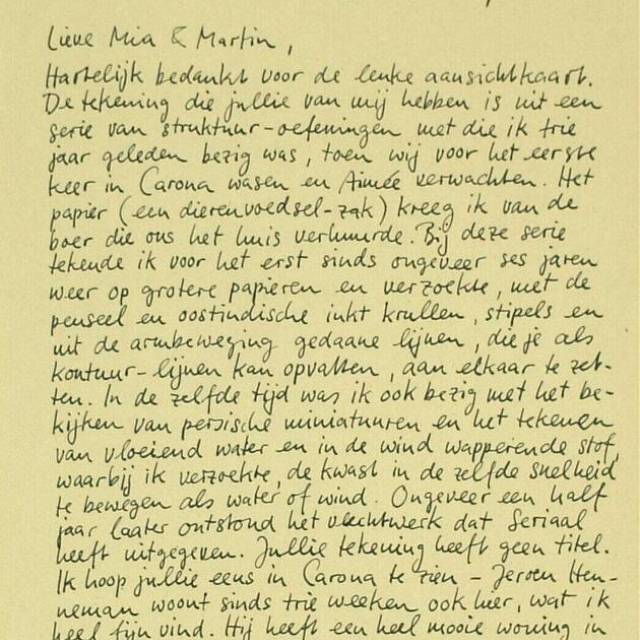 Lieve Mia & Martin,
Hartelijk bedankt voor de leuke aansichtkaart.
De tekening die jullie van mij hebben is uit een
serie van struktuur-oefeningen met die ik trie
jaar geleden bezig was, toen wij voor het eerste
keer in Carona wasen en Aimée verwachten. Het
papier (een dierenvoedsel-zak) kreeg ik van de
boer die ons het huis verhuurde. Bij deze serie
tekende ik voor het erst sinds ongeveer ses jaren
weer op grotere papieren en verzoekte, met de
penseel en oostindische inkt krullen, stipels en
uit de armbeweging gedaane lijnen, die je als
kontuur-lijnen kan opvatten, aan elkaar te zet-
ten. In de zelfde tijd was ik ook bezig met het be-
kijken van persische miniatuuren en het tekenen
van vloeiend water en in de wind wapperende stof,
waarbij ik verzoekte, de kwast in de zelfde snelheid
te bewegen als water of wind. Ongeveer een half
jaar laater ontstond het vlechtwerk dat Seriaal
heeft uitgegeven. Jullie tekening heeft geen titel.
Ik hoop jullie eens in Carona te zien – Jeroen Hen-
neman woont sinds trie weeken ook hier, wat ik
heel fijn vind. Hij heeft een heel mooie woning in